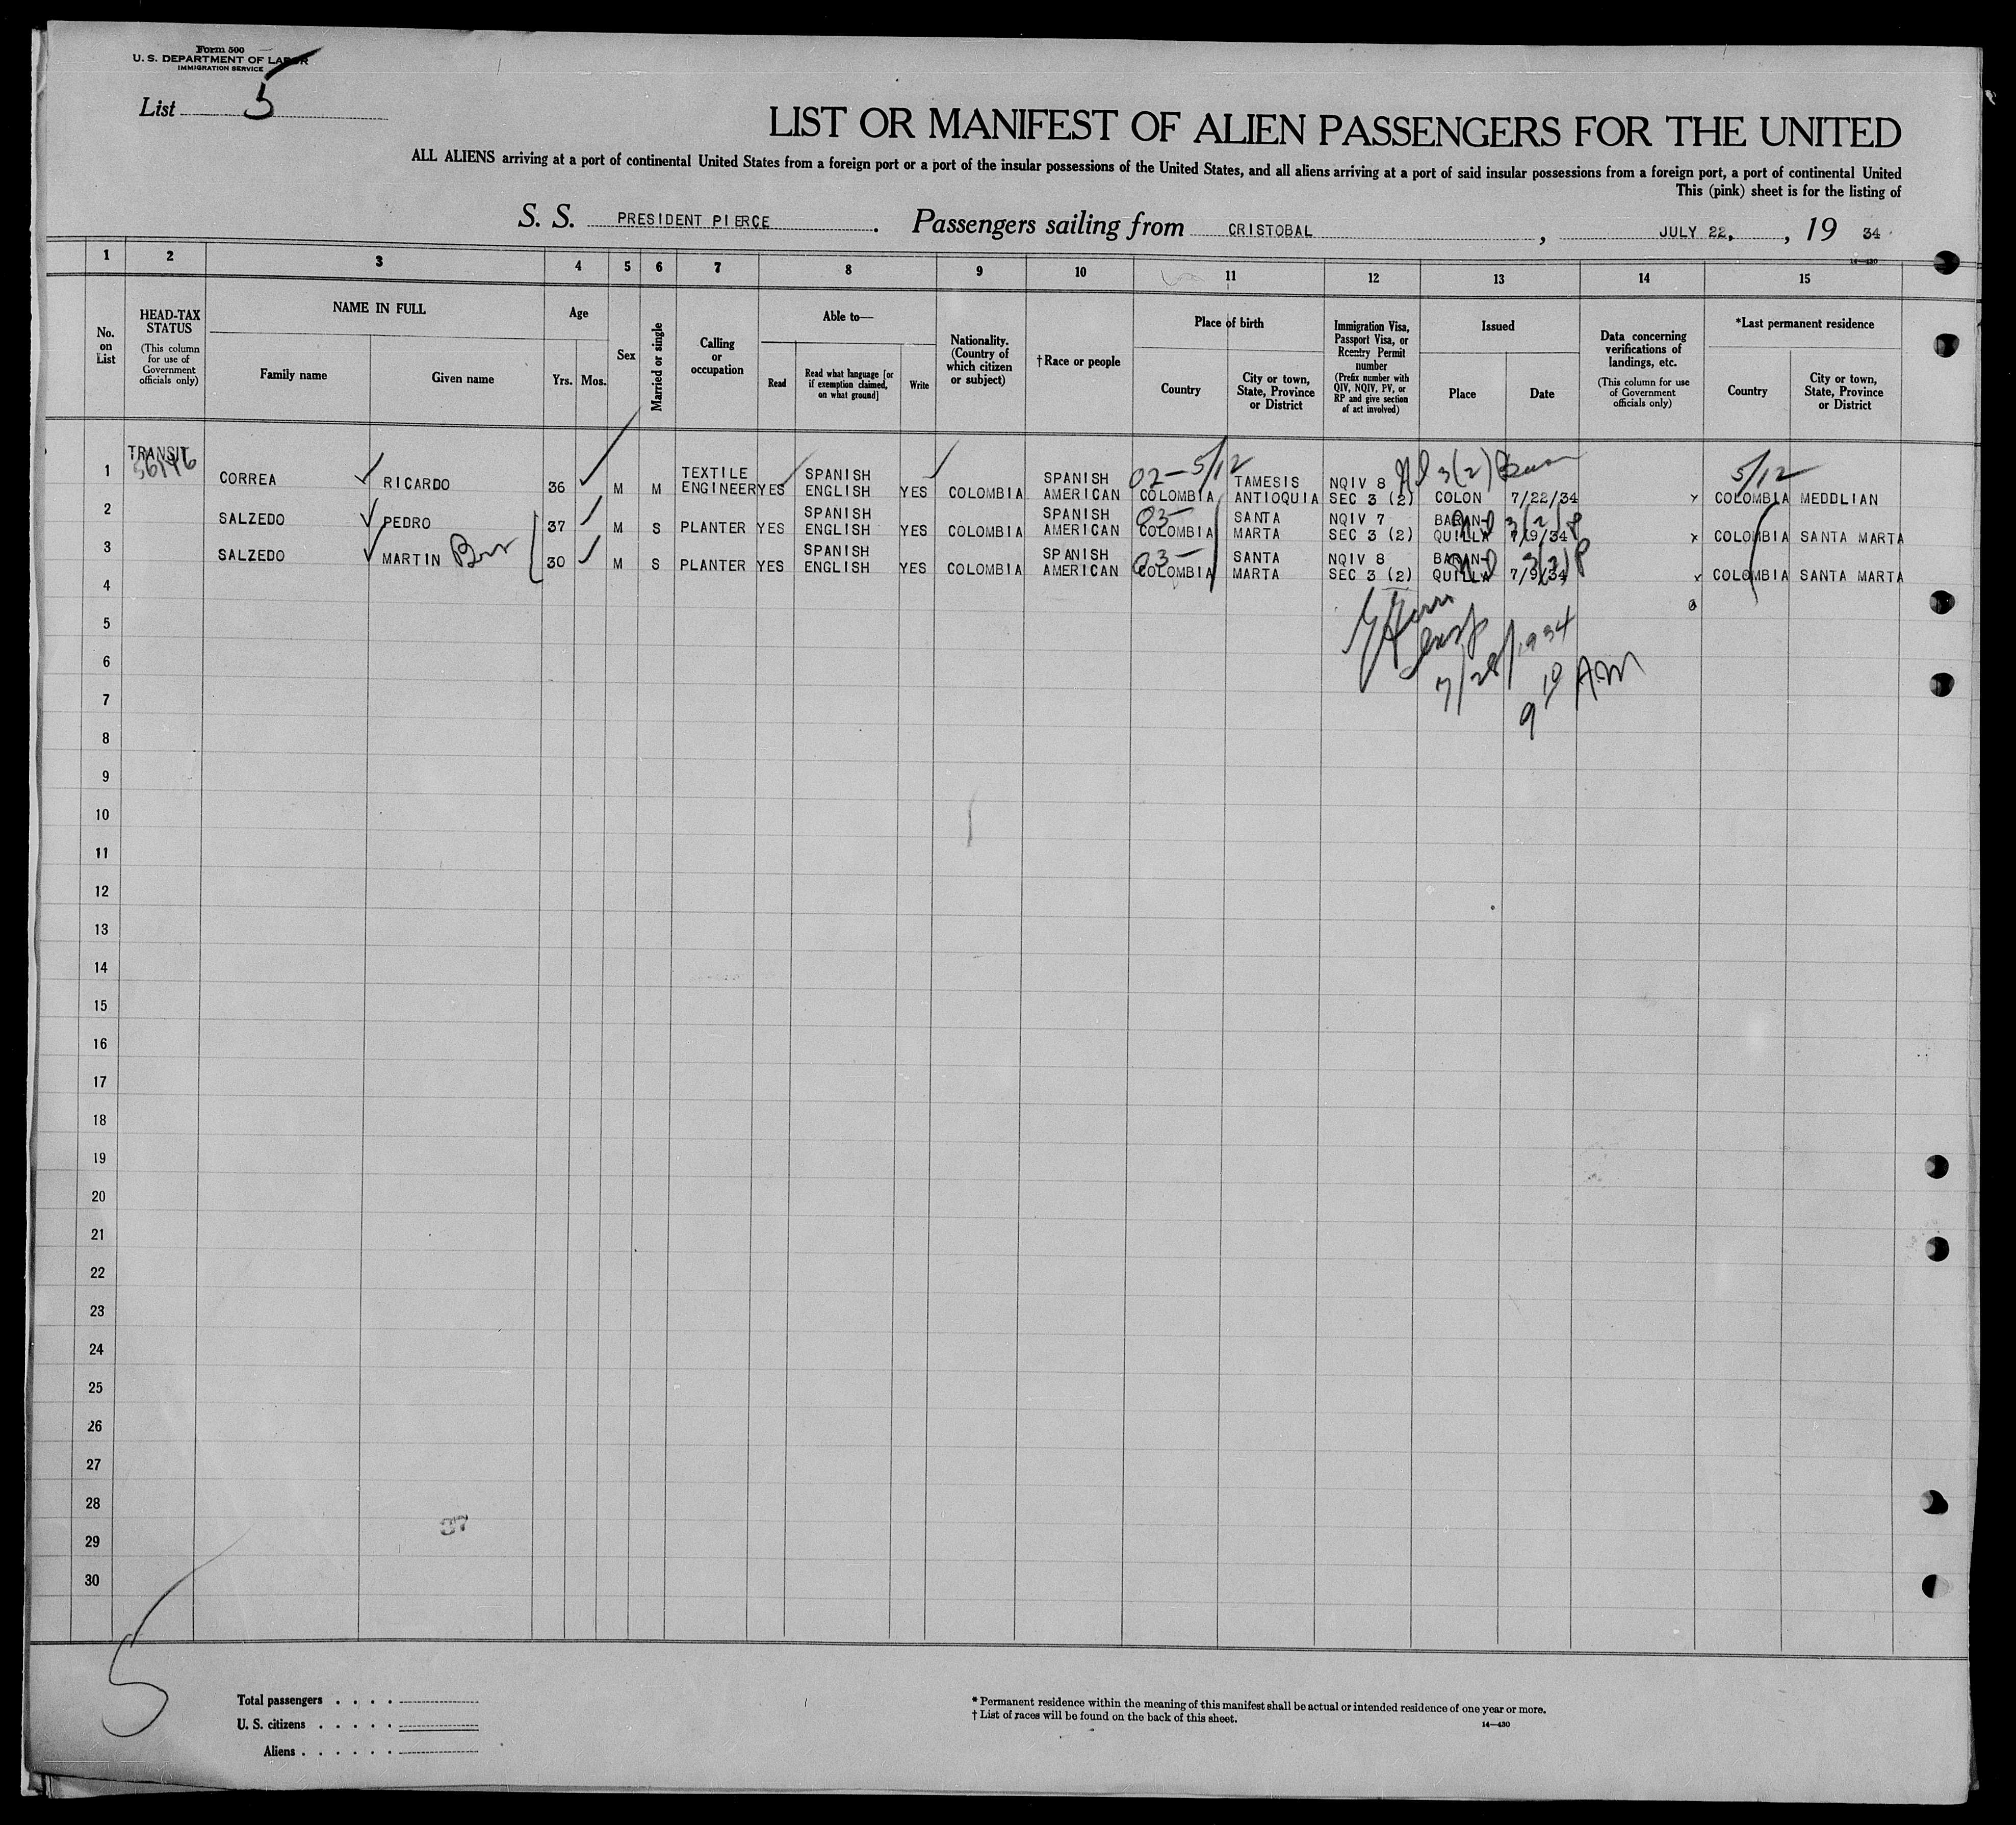 Form 500
U. S. DEPARTMENT OF LABOR
IMMIGRATION SERVICE
List 5
LIST OR MANIFEST OF ALIEN PASSENGERS FOR THE UNITED
ALL ALIENS arriving at a port of continental United States from a foreign port or a port of the insular possessions of the United States, and all aliens arriving at a port of said insular possessions from a foreign port, a port of continental United
This (pink) sheet is for the listing of
S. S. PRESIDENT PIERCE. Passengers sailing from CRISTOBAL, JULY 22, , 19 34
14—430
1 2 3 4 5 6 7 8 9 10 11 12 13 14 15
No. on List
HEAD-TAX STATUS
(This column for use of Government officials only)
NAME IN FULL
Family name
Given name
Age
Yrs. Mos.
Sex
Married or single
Calling or occupation
Able to—
Read
Read what language [or if exemption claimed, on what ground]
Write
Nationality. (Country of which citizen or subject)
† Race or people
Place of birth
Country
City or town, State, Province or District
Immigration Visa, Passport Visa, or Reentry Permit number
(Prefix number with QIV, NQIV, PV, or RP and give section of act involved)
Issued
Place
Date
Data concerning verifications of landings, etc.
(This column for use of Government officials only)
*Last permanent residence
Country
City or town, State, Province or District
TRANSIT
02— 5/12 3(2) 5/12
1 CORREA RICARDO 36 M M TEXTILE ENGINEER YES SPANISH ENGLISH YES COLOMBIA SPANISH AMERICAN COLOMBIA TAMESIS ANTIOQUIA NQIV 8 SEC 3 (2) COLON 7/22/34 x COLOMBIA MEDDLIAN
03— 3(2)P
2 SALZEDO PEDRO 37 M S PLANTER YES SPANISH ENGLISH YES COLOMBIA SPANISH AMERICAN COLOMBIA SANTA MARTA NQIV 7 SEC 3 (2) BARAN- QUILLA 7/9/34 x COLOMBIA SANTA MARTA
03— 3(2)P
3 SALZEDO MARTIN 30 M S PLANTER YES SPANISH ENGLISH YES COLOMBIA SPANISH AMERICAN COLOMBIA SANTA MARTA NQIV 8 SEC 3 (2) BARAN- QUILLA 7/9/34 x COLOMBIA SANTA MARTA
4
5
7/28/1934
6
9 10 AM
7
8
9
10
11
12
13
14
15
16
17
18
19
20
21
22
23
24
25
26
27
28
37
29
30
5
Total passengers . . . .
U. S. citizens . . . . .
Aliens . . . . . .
* Permanent residence within the meaning of this manifest shall be actual or intended residence of one year or more.
† List of races will be found on the back of this sheet.
14—430